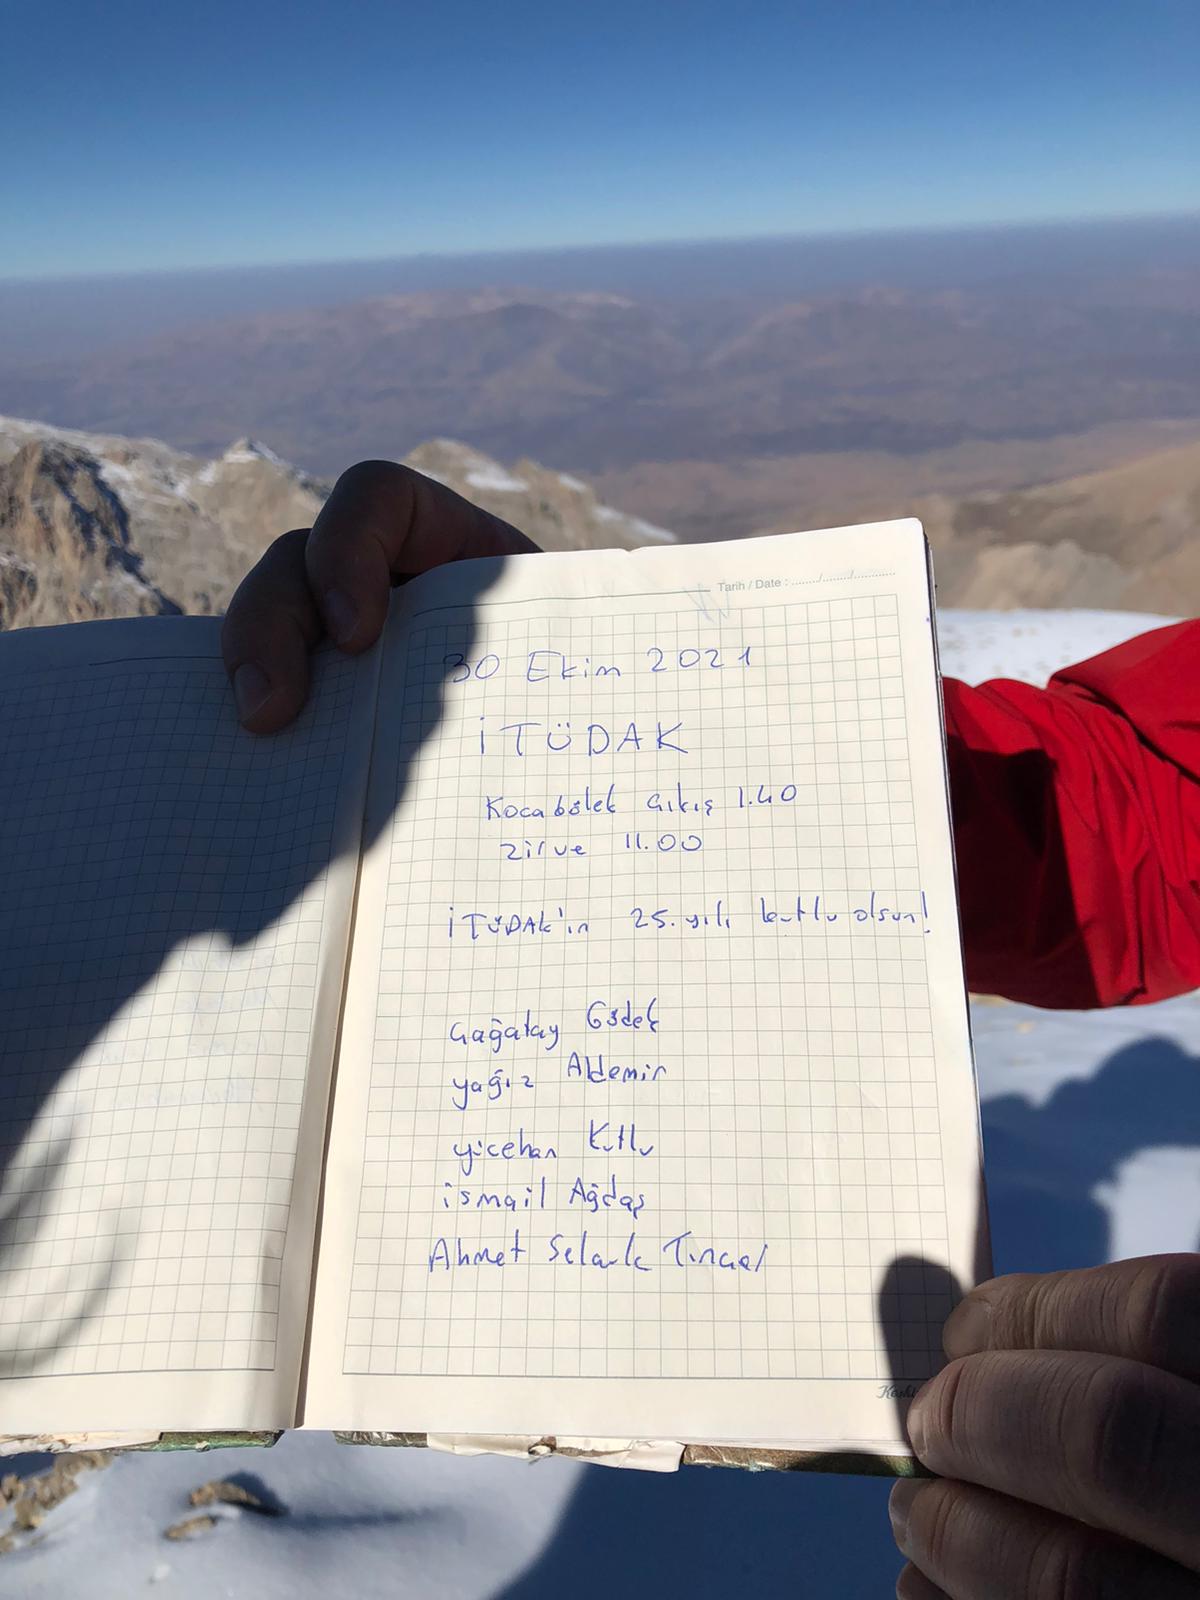 Tarih / Date : ......../......../............
30 Ekim 2021
İTÜDAK
Kocabölek Çıkış 1.40
Zirve 11.00
İTÜDAK'ın 25. yılı kutlu olsun!
Çağatay Gödek
yağız Akdemir
yücehan Kutlu
ismail Ağdaş
Ahmet Selank